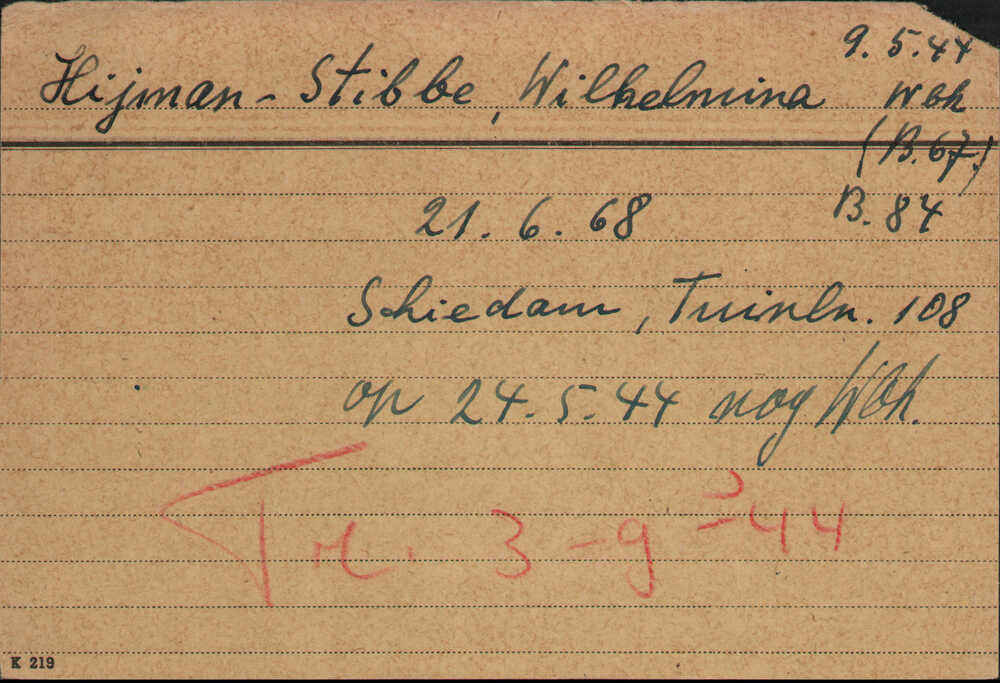 9.5.44
Hijman-Stibbe, Wilhelmina Wbk
(B.67)
21.6.68 B.84
Schiedam, Tuinln. 108
op 24.5.44 nog Wbk.
Tr. 3-9-44
K 219